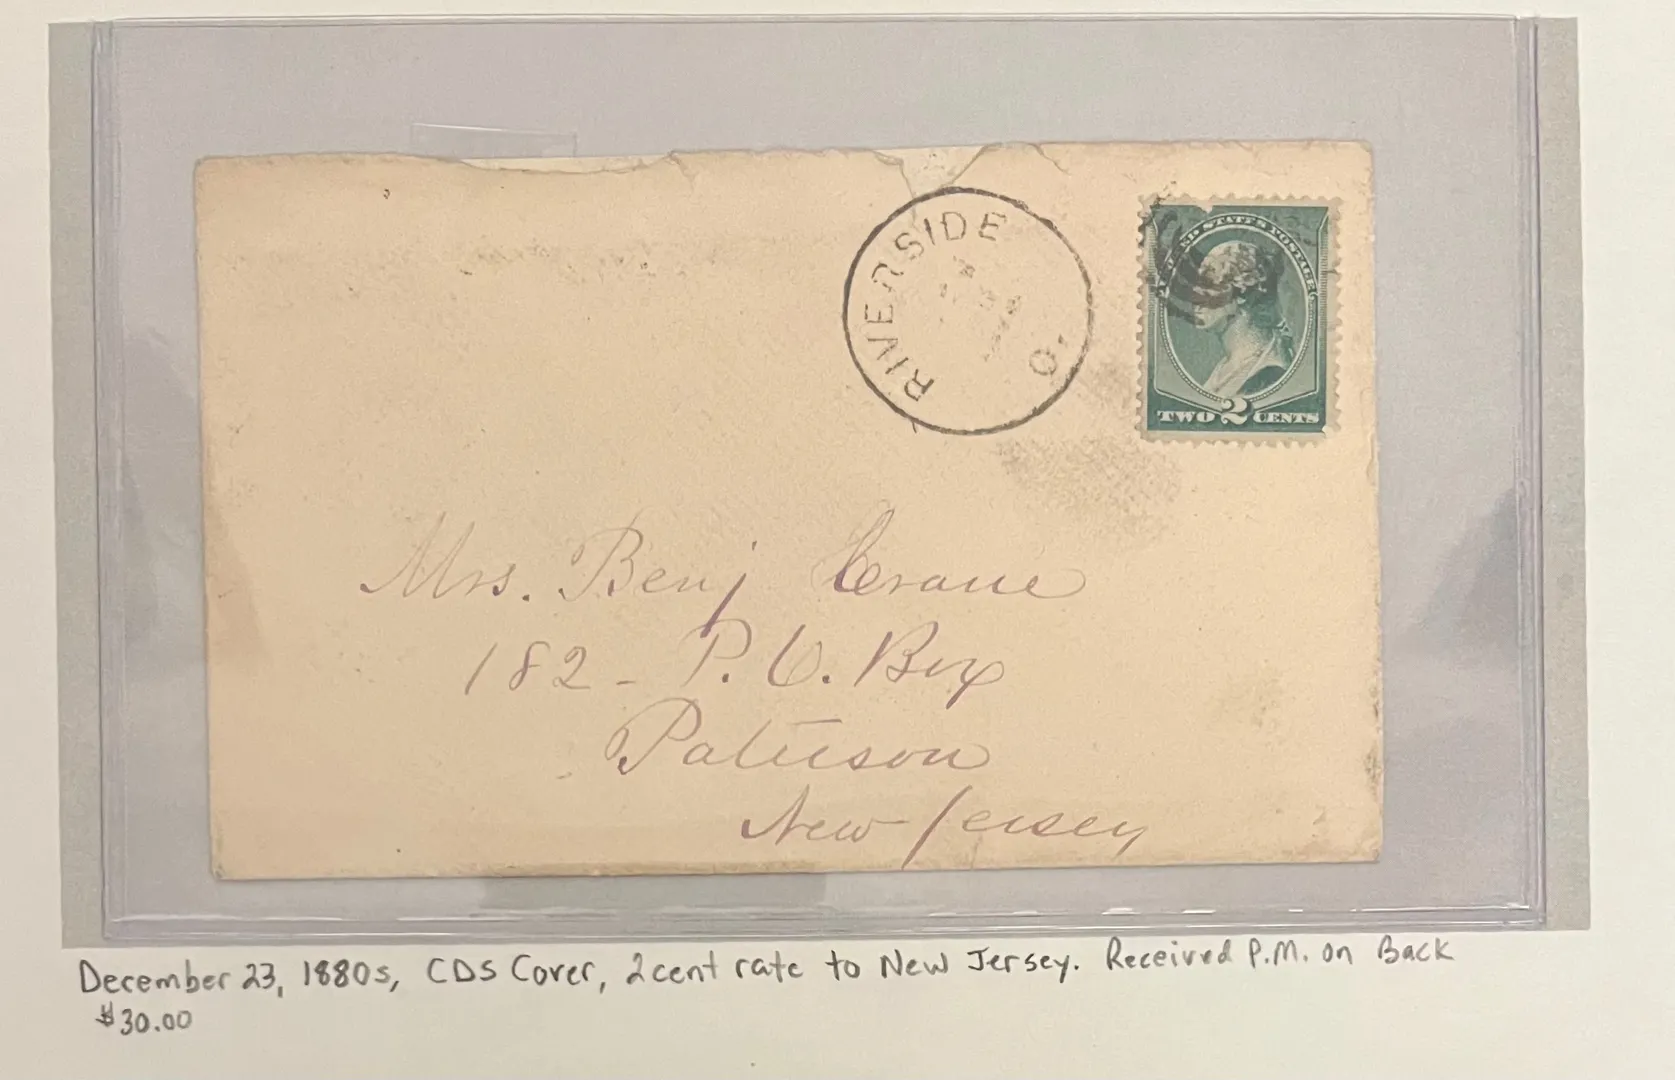 RIVERSIDE
O.
UNITED STATES POSTAGE
TWO 2 CENTS
Mrs. Benj Crane
182 - P. O. Box
Paterson
New Jersey
December 23, 1880s, CDS Cover, 2 cent rate to New Jersey. Received P.M. on Back
$30.00